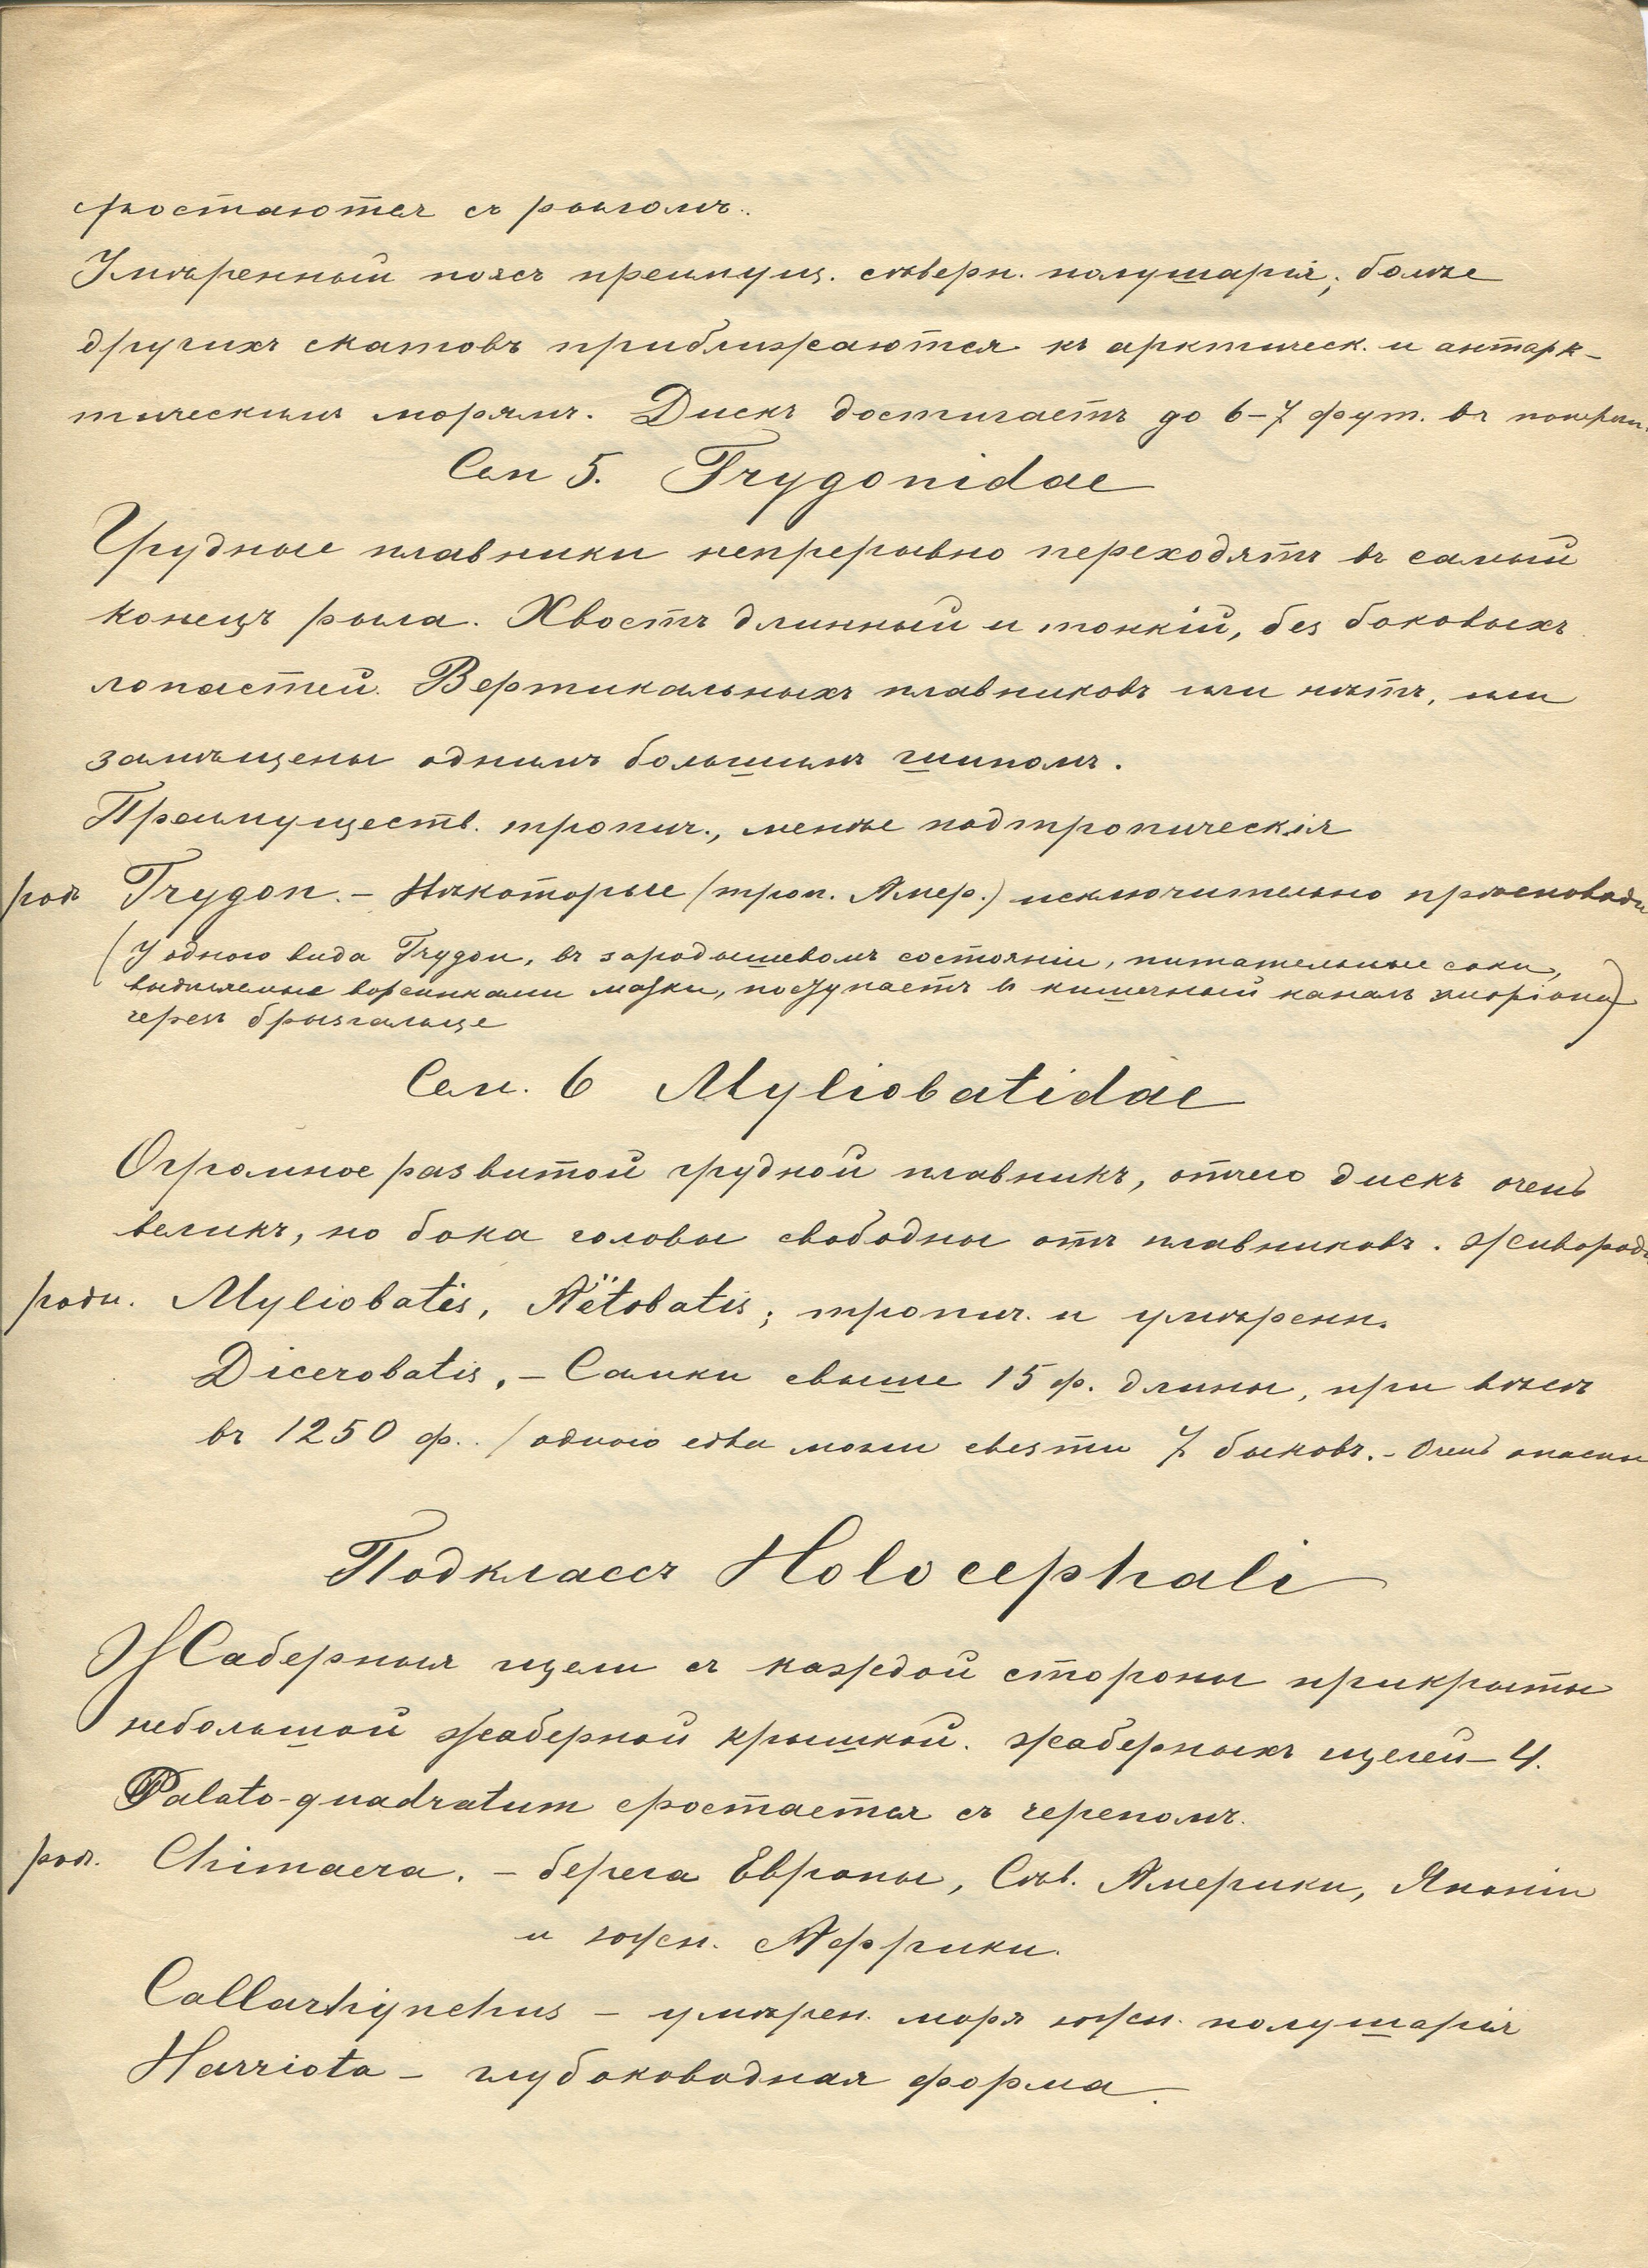 сростаются съ рыломъ.
Умѣренный поясъ преимущ. сѣверн. полушарія; болѣе
другихъ скатовъ приближаются къ арктическ. и антарк-
тическимъ морямъ. Дискъ достигаетъ до 6–7 фут. въ попереч.
Сем 5. Trygonidae
Грудные плавники непрерывно переходятъ въ самый
конецъ рыла. Хвостъ длинный и тонкій, без боковыхъ
лопастей. Вертикальныхъ плавниковъ или нѣтъ, или
замѣщены однимъ большимъ шипомъ.
Преимуществ. тропич., менѣе подтропическія
родъ Trygon. – Нѣкоторые (троп. Амер.) исключительно прѣсноводн
(У одного вида Trygon, въ зародышевомъ состояніи, питательные соки,
выдѣляемые ворсинками матки, поступаетъ въ кишечный каналъ эмбріона)
черезъ брызгальце
Сем. 6 Myliobatidae
Огромное развитой грудной плавникъ, отчего дискъ очень
великъ, но бока головы свободны отъ плавниковъ. Живород.
роды. Myliobatis, Aëtobatis; тропич. и умѣренн.
Dicerobatis. – Самки свыше 15 ф. длины, при вѣсѣ
въ 1250 ф.. (одного едва могли свезти 7 быковъ. – Очень опасны
Подклассъ Holocephali
Жаберныя щели съ каждой стороны прикрыты
небольшой жаберной крышкой. Жаберныхъ щелей – 4.
Palato-quadratum сростается съ черепомъ.
родъ. Chimaera. – берега Европы, Сѣв. Америки, Японіи
и южн. Африки.
Callarhynchus – умѣрен. моря южн. полушарія
Harriota – глубоководная форма.